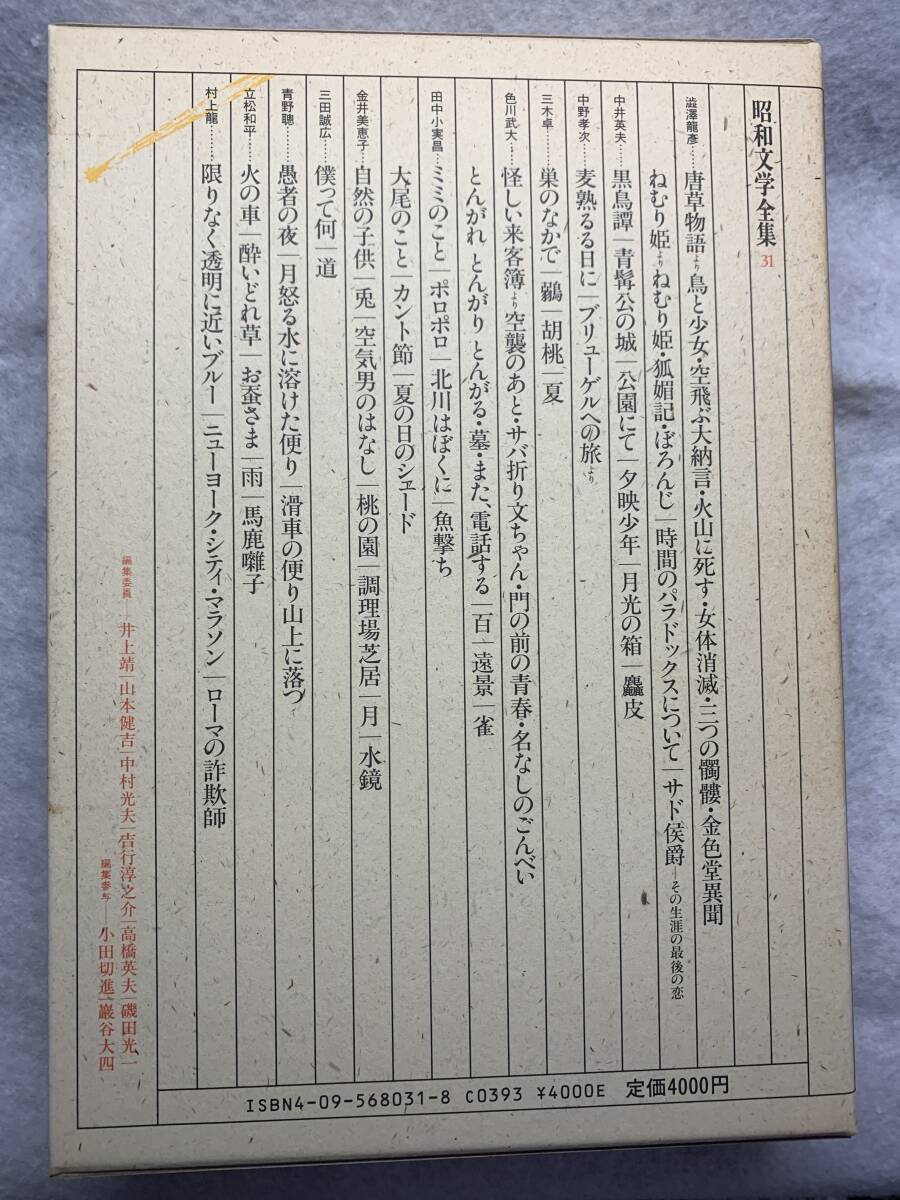 昭和文学全集 31
澁澤龍彥……唐草物語より 鳥と少女・空飛ぶ大納言・火山に死す・女体消滅・三つの髑髏・金色堂異聞
ねむり姫より ねむり姫・狐媚記・ぼろんじ｜時間のパラドックスについて｜サド侯爵―その生涯の最後の恋
中井英夫……黒鳥譚｜青髯公の城｜公園にて｜夕映少年｜月光の箱｜麤皮
中野孝次……麦熟るる日に｜ブリューゲルへの旅より
三木卓……巣のなかで｜鶸｜胡桃｜夏
色川武大……怪しい来客簿より 空襲のあと・サバ折り文ちゃん・門の前の青春・名なしのごんべい
とんがれ とんがり とんがる・墓・また、電話する｜百｜遠景｜雀
田中小実昌……ミミのこと｜ポロポロ｜北川はぼくに｜魚撃ち
大尾のこと｜カント節｜夏の日のシェード
金井美恵子……自然の子供｜兎｜空気男のはなし｜桃の園｜調理場芝居｜月｜水鏡
三田誠広……僕って何｜道
青野聰……愚者の夜｜月怒る水に溶けた便り｜滑車の便り山上に落つ
立松和平……火の車｜酔いどれ草｜お蚕さま｜雨｜馬鹿囃子
村上龍……限りなく透明に近いブルー｜ニューヨーク・シティ・マラソン｜ローマの詐欺師
編集委員―井上靖｜山本健吉｜中村光夫｜吉行淳之介｜高橋英夫｜磯田光一
編集参与―小田切進｜巖谷大四
ISBN4-09-568031-8 C0393 ¥4000E 定価4000円